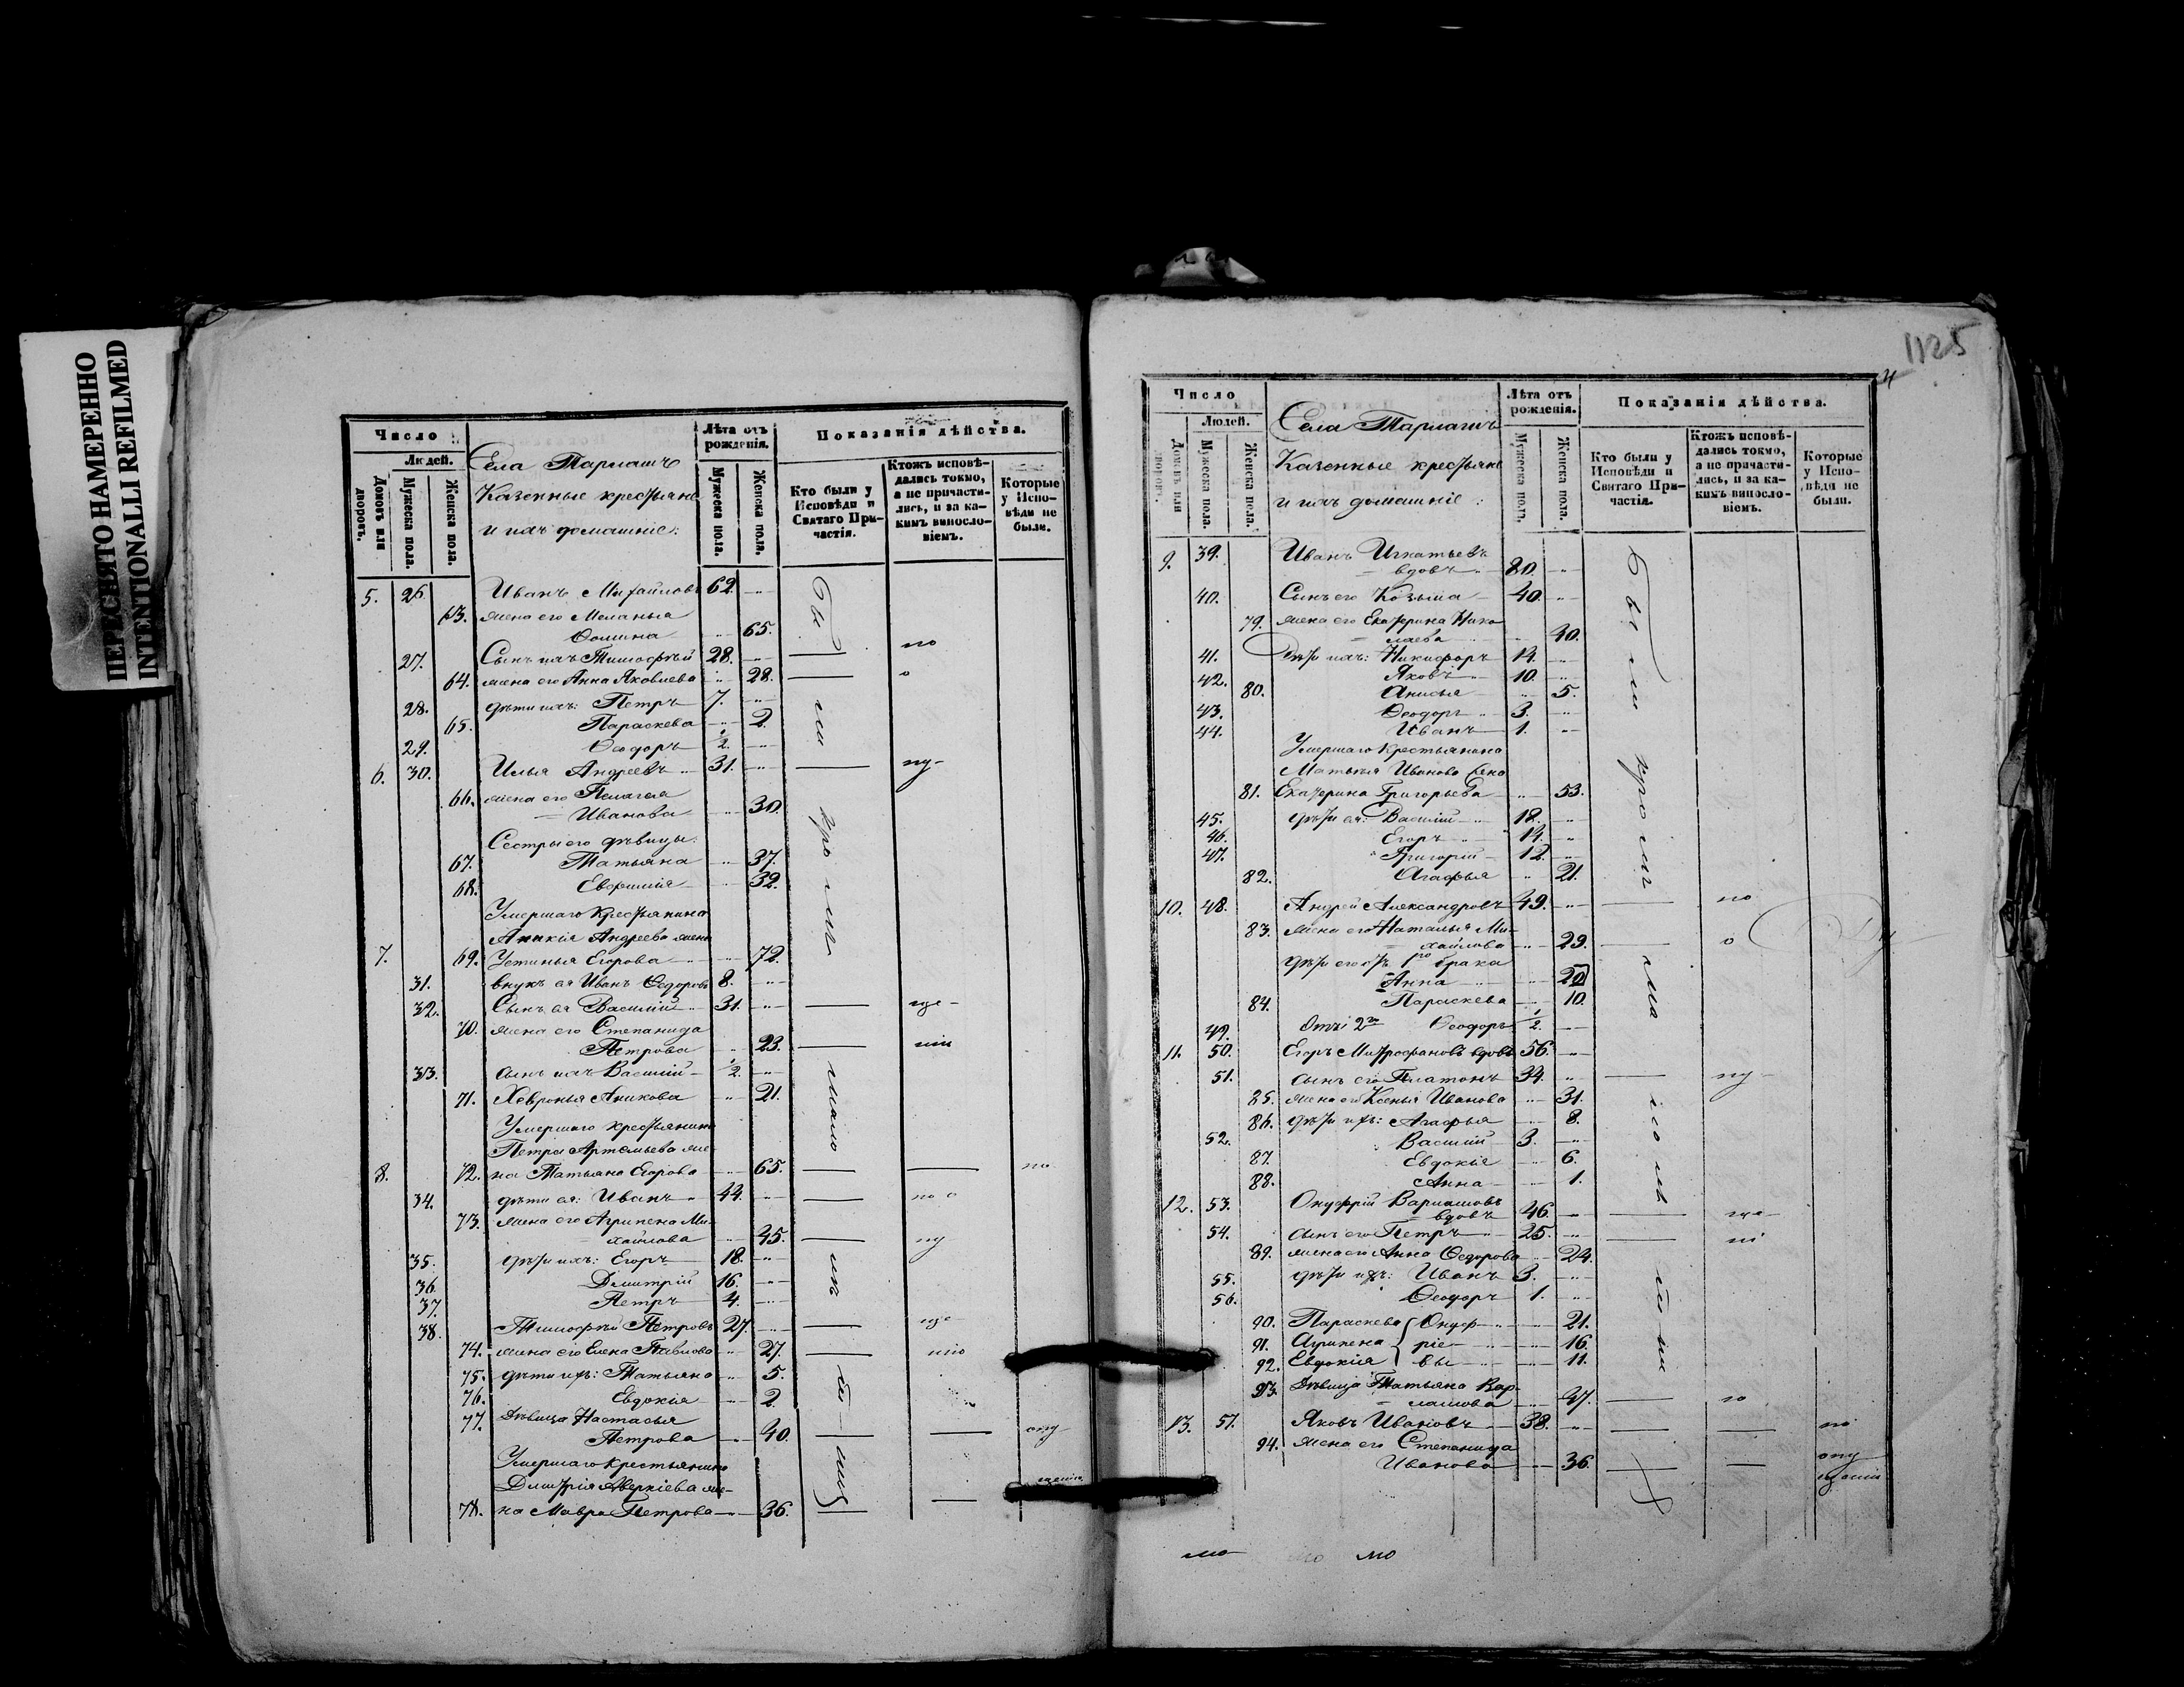 ПЕРЕСНЯТО НАМЕРЕННО
INTENTIONALLI REFILMED
Число
Людей.
Домовъ или дворовъ.
Мужеска пола.
Женска пола.
Села Тарлашъ
Казенные крестьяне
и ихъ домашніе:
Лѣта отъ рожденія.
Мужеска пола.
Женска пола.
Показанія дѣйства.
Кто были у Исповѣди и Святаго Причастія.
Ктожъ исповѣдались токмо, а не причастились, и за какимъ винословіемъ.
Которые у Исповѣди не были.
5. 26. Иванъ Михайловъ 62.
63. жена его Меланья
Фомина 65.
27. Сынъ ихъ Тимофѣй 28. по
64. жена его Анна Яковлева 28. о
28. дѣти ихъ: Петръ 7.
65. Параскева 2.
29. Ѳеодоръ 1/2.
6. 30. Илья Андреевъ 31. пу-
66. жена его Пелагея
Иванова 30.
Сестры его дѣвицы:
67. Татьяна 37.
68. Евфимія 32.
Умершаго крестьянина
Аникія Андреева жена
7. 69. Устинья Егорова 72.
31. внукъ ея Иванъ Ѳедоровъ 8.
32. Сынъ ея Василій 31. ще-
70. жена его Степанида
Петрова 23. нію
33. сынъ ихъ Василій 1/2.
71. Хевронья Аникова 21.
Умершаго крестьянина
Петра Артемьева же-
8. 72. на Татьяна Егорова 65. по
34. дѣти ея: Иванъ 44. по о
73. жена его Агрипена Ми-
хайлова 45. пу
35. дѣти ихъ: Егоръ 18.
36. Дмитрій 16.
37. Петръ 4.
38. Тимофѣй Петровъ 27. ще-
74. жена его Елена Павлова 27. нію
75. дѣти ихъ: Татьяна 5.
76. Евдокія 2.
77. Дѣвица Настасья
Петрова 40. опу
Умершаго крестьянина
Дмитрія Аверкіева же-
78. на Мавра Петрова 36. щенію
Были кромѣ мало
1125
4
Число
Людей.
Домовъ или дворовъ.
Мужеска пола.
Женска пола.
Села Тарлашъ
Казенные крестьяне
и ихъ домашніе:
Лѣта отъ рожденія.
Мужеска пола.
Женска пола.
Показанія дѣйства.
Кто были у Исповѣди и Святаго Причастія.
Ктожъ исповѣдались токмо, а не причастились, и за какимъ винословіемъ.
Которые у Исповѣди не были.
9. 39. Иванъ Игнатьевъ
вдовъ 80.
40. Сынъ его Козьма 40.
79. жена его Екатерина Нико
лаева 40.
41. Дѣти ихъ: Никифоръ 14.
42. Яковъ 10.
80. Анисья 5.
43. Ѳеодоръ 3.
44. Иванъ 1.
Умершаго крестьянина
Матвѣя Иванова жена
81. Екатерина Григорьева 53.
45. дѣти ея: Василій 18.
46. Егоръ 14.
47. Григорій 12.
82. Агафья 21.
10. 48. Андрей Александровъ 49. по
83. жена его Наталья Ми-
хайлова 29. о
дѣти его отъ 1го брака
Анна 20
84. Параскева 10.
49. Отъ 2го Ѳеодоръ 1/2.
11. 50. Егоръ Митрофановъ вдовъ 56.
51. сынъ его Платонъ 34. пу-
85. жена его Ксенья Иванова 31.
86. дѣти ихъ: Агафья 8.
52. Василій 3.
87. Евдокія 6.
88. Анна 1.
12. 53. Онуфрій Варламовъ
вдовъ 46. ще-
54. сынъ его Петръ 25. ні
89. жена его Анна Ѳедорова 24.
55. дѣти ихъ: Иванъ 3.
56. Ѳеодоръ 1.
90. Параскева Онуф- 21.
91. Агрипена ріе- 16.
92. Евдокія вы 11.
93. Дѣвица Татьяна Вар-
ламова 47. ю
13. 57. Яковъ Ивановъ 38. по
94. жена его Степанида
Иванова 36. опу
щенію
Были кромѣ ма
мо мо мо